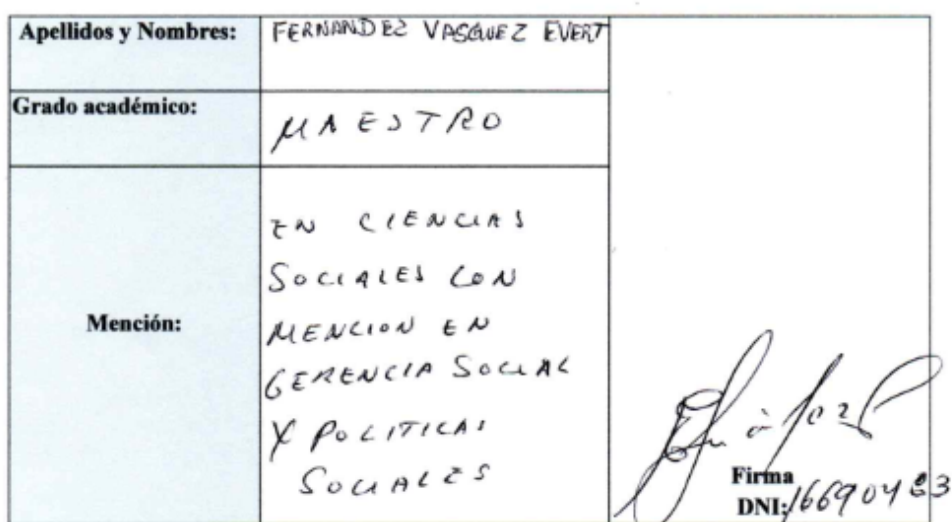 Apellidos y Nombres: FERNANDEZ VASQUEZ EVERT
Grado académico: MAESTRO
Mención:
EN CIENCIAS
SOCIALES CON
MENCION EN
GERENCIA SOCIAL
Y POLITICAS
SOCIALES
Firma
DNI: